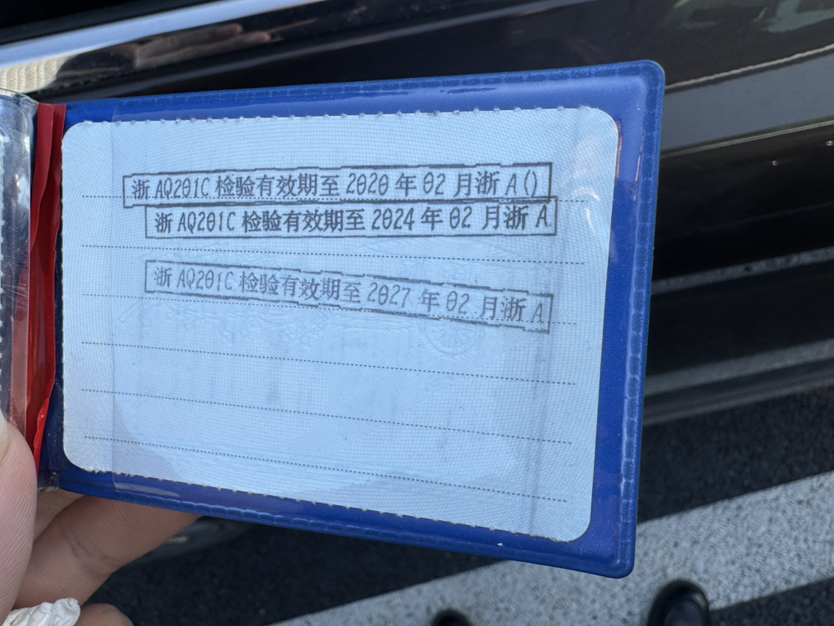 浙 AQ201C 检验有效期至 2020 年 02 月浙 A()
浙 AQ201C 检验有效期至 2024 年 02 月浙 A
浙 AQ201C 检验有效期至 2027 年 02 月浙 A